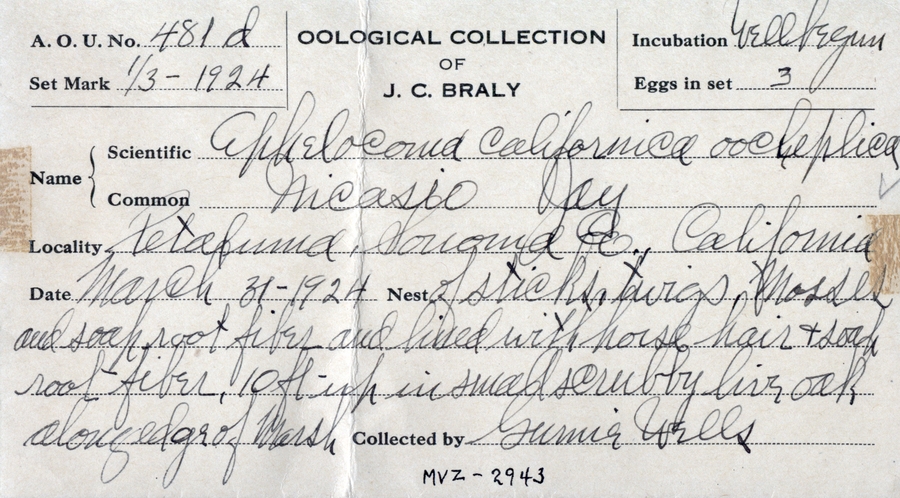 A. O. U. No. 481 d
OOLOGICAL COLLECTION
OF
J. C. BRALY
Incubation Well begun
Set Mark 1/3 - 1924
Eggs in set 3
Name
Scientific Aphelocoma californica oocleptica
Common Nicasio Jay
Locality Petaluma, Sonoma Co., California
Date March 31-1924 Nest of sticks, twigs, Mosses
and soap root fiber and lined with horse hair + soap
root fiber, 10 ft up in small scrubby live oak
along edge of Marsh Collected by Gurnie Wells
MVZ - 2943